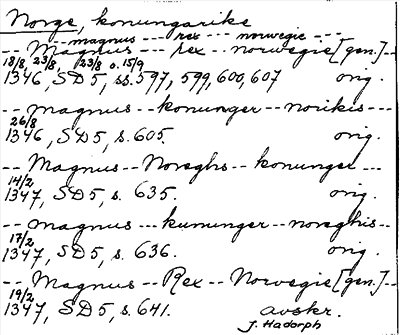 Norge, konungarike
--magnus --- rex --- norwegie ---
-- Magnus --- rex -- norwegie [gen.] --
18/8, 23/8, 23/8 o. 15/9
1346, SD5, ss. 597, 599, 600, 607 orig.
-- magnus -- konunger -- norikis ---
26/8
1346, SD5, s. 605. orig.
-- Magnus -- Noreghs -- konunger ---
14/2
1347, SD5, s. 635. orig.
-- magnus -- kununger -- noreghis --
17/2
1347, SD5, s. 636. orig.
-- Magnus -- Rex -- Norwegie [gen.] --
19/2
1347, SD5, s. 641. avskr.
J. Hadorph